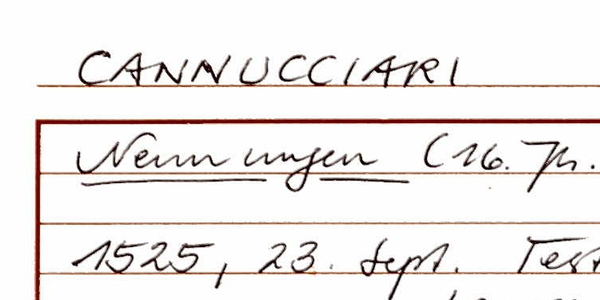 CANNUCCIARI
Nennungen (16. Jh.
1525, 23. Sept. Test